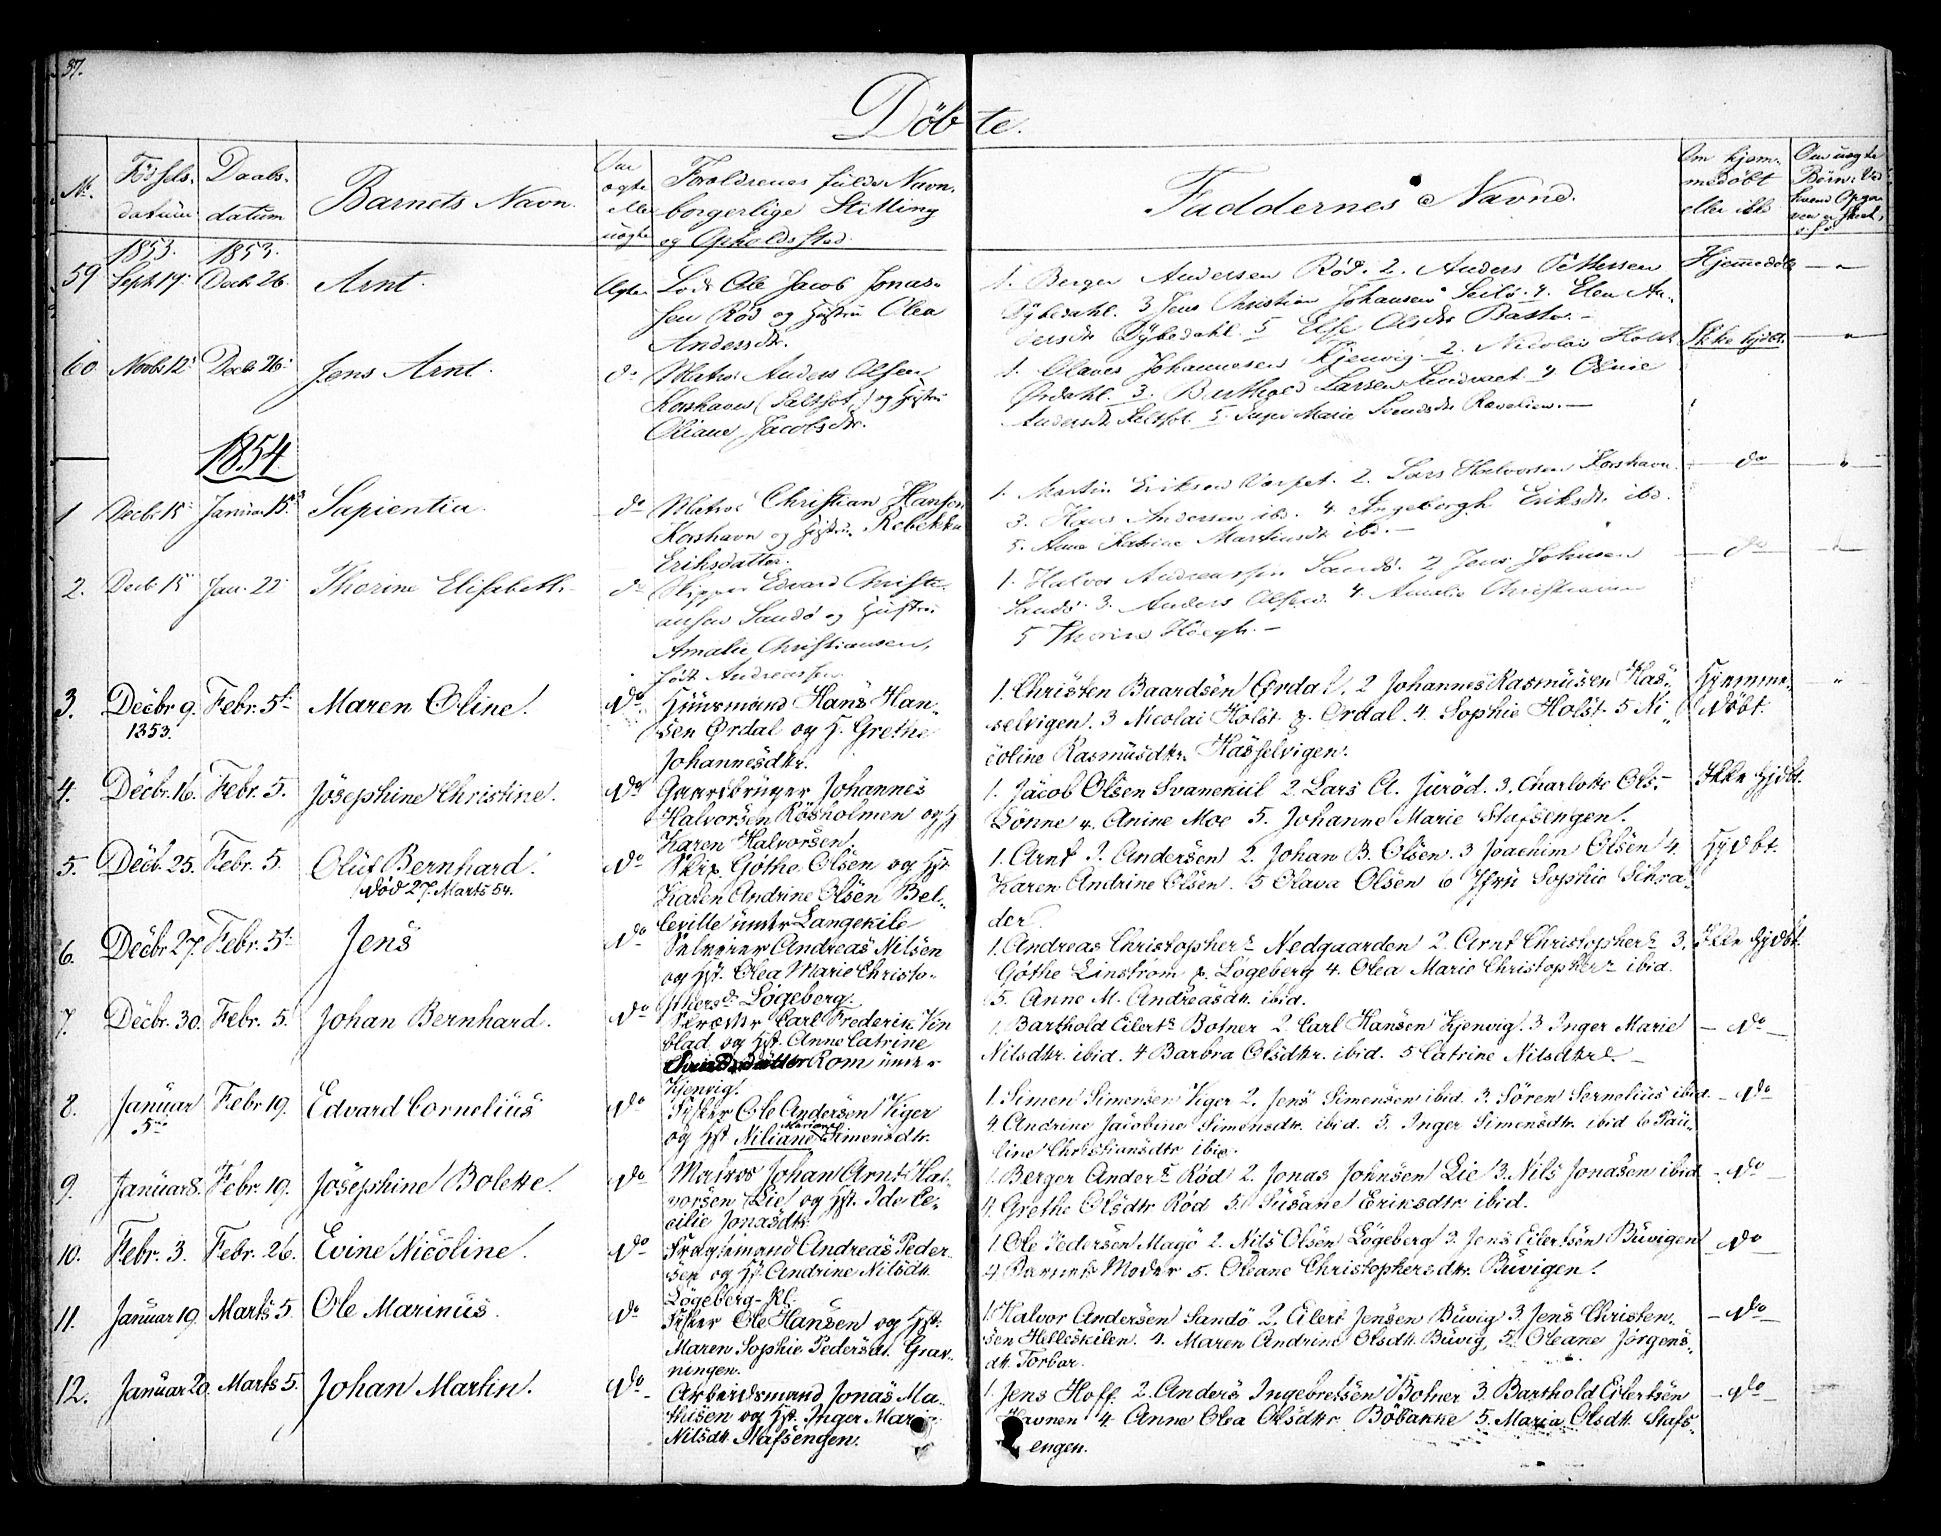 37.
Döbte.
No.
Födsels-
datum
Daabs-
datum
Barnets Navn.
Om
ægte
eller
uægte
Foraldrenes fulde Navn,
borgerlige Stilling
og Opholdssted.
Faddernes Navne.
Om hjem-
medöbt
eller ikke
Om uægte
Börn: Ved
1853. 1853.
59 Septr 19. Decb. 26. Arnt. Ægte Lods Ole Jacob Jonas-
sen Röd og Hustru Olea
Andersdtr.
1. Berger Andersen Röd. 2. Anders Pettersen
Dybedahl. 3 Jens Christian Johansen Seilö. 4. Elen An-
dersdtr Dybedahl. 5 Else Olsdtr Basto. –
Hjemmedöbt
60 Novb. 12. Decb. 26. Jens Arnt. do Matros Anders Olsen
Korshavn (Saltbot.) og Hustru
Oliane Jacobsdtr.
1. Olaves Johannesen Kjenvig. 2. Nicolai Holst
Ørdahl. 3. Barthold Larsen 4 Oline
Andersdtr Saltbot. 5. Inger Marie Svendsdtr –
Ikke hjdbt.
1854.
1 Decb. 15 Januar 15. Sapientia. do Matros Christian Hansen
Korshavn og Hustru Rebekka
Eriksdatter.
1. Martin Eriksen Vorpet. 2. Lars Halvorsen Korshavn.
3. Hans Andersen ibd. 4. Ingeborgh Eriksdtr. ibd.
5. Anne Katrine Martinsdtr ibd. –
do
2. Decb. 15 Jan. 22 Thorine Elisabeth. do Skipper Edvard Christi-
ansen Sandö og Hustru
Amalie Christiansen,
född Andreassen
1. Halvor Andreassen Sandö. 2 Jens Johnsen
Sandö. 3. Anders Olsen. 4. Amalie Christiansen
5 Thorine Höegh. –
do
3. Decbr 9. Febr. 5te Maren Oline. do Huusmand Hans Han-
1853. sen Ørdal og H. Grethe
Johannesdtr.
1. Christen Baardsen Ørdal. 2 Johannes Rasmusen Has-
selvigen. 3 Nicolai Holst Ørdal. 4. Sophie Holst. 5 Ni-
coline Rasmusdtr. Hasselvigen.
Hjemme-
döbt.
4. Decbr. 16. Febr. 5. Josephine Christine. do Gaardbruger Johannes
Halvorsen Rösholmen og H
Karen Halvorsen.
1. Jacob Olsen Svanekiil 2. Lars A. Juröd. 3. Charlotte Ols-
Sönne 4. Anine Moe 5. Johanne Marie Stafsengen.
Ikke hjdbt.
5. Decb. 25. Febr. 5. Oluf Bernhard. do Skip. Göthe Olsen og Hst
död 27. Marts 54. Karen Andrine Olsen Bel-
leville under Langekile
1. Arnt J. Andersen 2. Johan B. Olsen. 3 Joachim Olsen 4.
Karen Andrine Olsen. 5 Olava Olsen 6 Jfru Sophie Schra-
der.
Hjdbt.
6. Decbr 27. Febr. 5te Jens do Selveier Andreas Nilsen
og Hst. Olea Marie Christo-
phersdr. Lögeberg.
1. Andreas Christophers. Nedgaarden 2. Arnt Christophers. 3.
Göthe Linström p. Lögeberg 4. Olea Marie Christophers. ibid.
5. Anne M. Andreasdtr. ibid.
Ikke hjdbt.
7. Decbr. 30. Febr. 5. Johan Bernhard. do Skrædr Carl Frederik Vin
blad og Hst. Anne Catrine
Rom under
Kjenvig.
1. Barthold Eilerts. Botner 2. Carl Hansen Kjenvig. 3 Inger Marie
Nilsdtr. ibid. 4 Barbra Olsdtr. ibid. 5 Catrine Nilsdtr. –
do
8. Januar Febr 19. Edvard Cornelius do Fisker Ole Andersen Viger
5te og Hst Niliane Mariane Simensdtr.
1. Simen Simensen Viger 2. Jens Simensen ibid. 3. Sören Sernelius ibid.
4 Andrine Jacobine Simensdtr. ibid. 5. Inger Simensdtr. ibid 6 Pau-
line Christiansdtr ibid.
do
9. Januar 8. Febr. 19. Josephine Bolette. do Matros Johan Arnt Hal-
vorsen Lie og Hst. Ide Ce-
cilie Jonasdtr.
1. Berger Anders. Röd 2. Jonas Johnsen Lie 3. Nils Jonasen ibid.
4. Grethe Olsdtr Röd 5. Susane Eriksdtr. ibid.
do
10. Febr. 3. Febr. 26. Evine Nicoline. do Fragtemand Andreas Peder-
sen og Hst Andrine Nilsdtr.
Lögeberg-Kl.
1 Ole Pedersen Magö 2. Nils Olsen Lögeberg 3. Jens Eilertsen Buvigen
4 Barnets Moder 5. Oleane Christophersdtr. Buvigen.
do
11. Januar 19. Marts 5. Ole Marinus. do Fisker Ole Hansen og Hst.
Maren Sophie Pedersdtr. Grav-
ningen.
1. Halvor Andersen Sandö 2. Eilert Jensen Buvig 3. Jens Christen-
sen Helleskilen. 4. Maren Andrine Olsdtr. Buvig, 5. Oleane Jörgens-
dtr. Torbar.
do
12. Januar 20. Marts 5. Johan Martin. do Arbeidsmand Jonas Ma-
thisen og Hst. Inger Marie
Nilsdtr. Stafsengen.
1. Jens Hoff. 2. Anders Ingebretsen Botner 3. Barthold Eilertsen
Havnen 4. Anne Olea Olsdtr. Böbakke 5. Maria Olsdtr. Stafs-
engen.
do